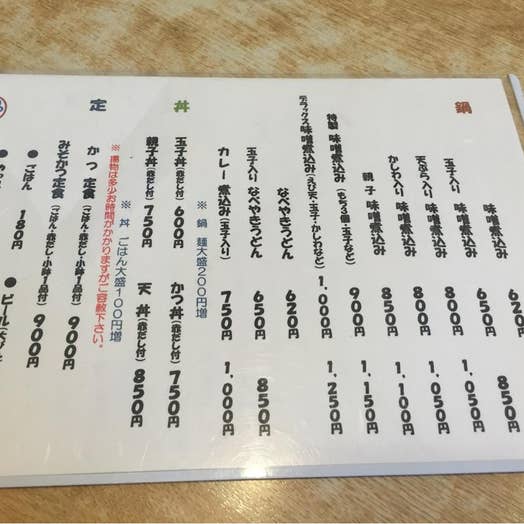 鍋
味噌煮込み 620円
玉子入り 味噌煮込み 650円 850円
天ぷら入り 味噌煮込み 800円 1,050円
かしわ入り 味噌煮込み 800円 1,050円
親子 味噌煮込み 850円 1,100円
特製 味噌煮込み(もち3個・玉子など) 900円 1,150円
デラックス味噌煮込み(えび天・玉子・かしわなど) 1,000円 1,250円
なべやきうどん 620円
玉子入り なべやきうどん 650円 850円
カレー 煮込み(玉子入り) 750円 1,000円
※ 鍋 麺大盛200円増
丼
玉子丼(赤だし付) 600円 かつ丼(赤だし付) 750円
親子丼(赤だし付) 750円 天 丼(赤だし付) 850円
※ 丼 ごはん大盛100円増
※ 揚物は多少お時間がかかりますがご容赦下さい。
定
かつ 定食(ごはん・赤だし・小鉢1品付) 900円
みそかつ定食(ごはん・赤だし・小鉢1品付) 900円
● ごはん 180円 ● ビール